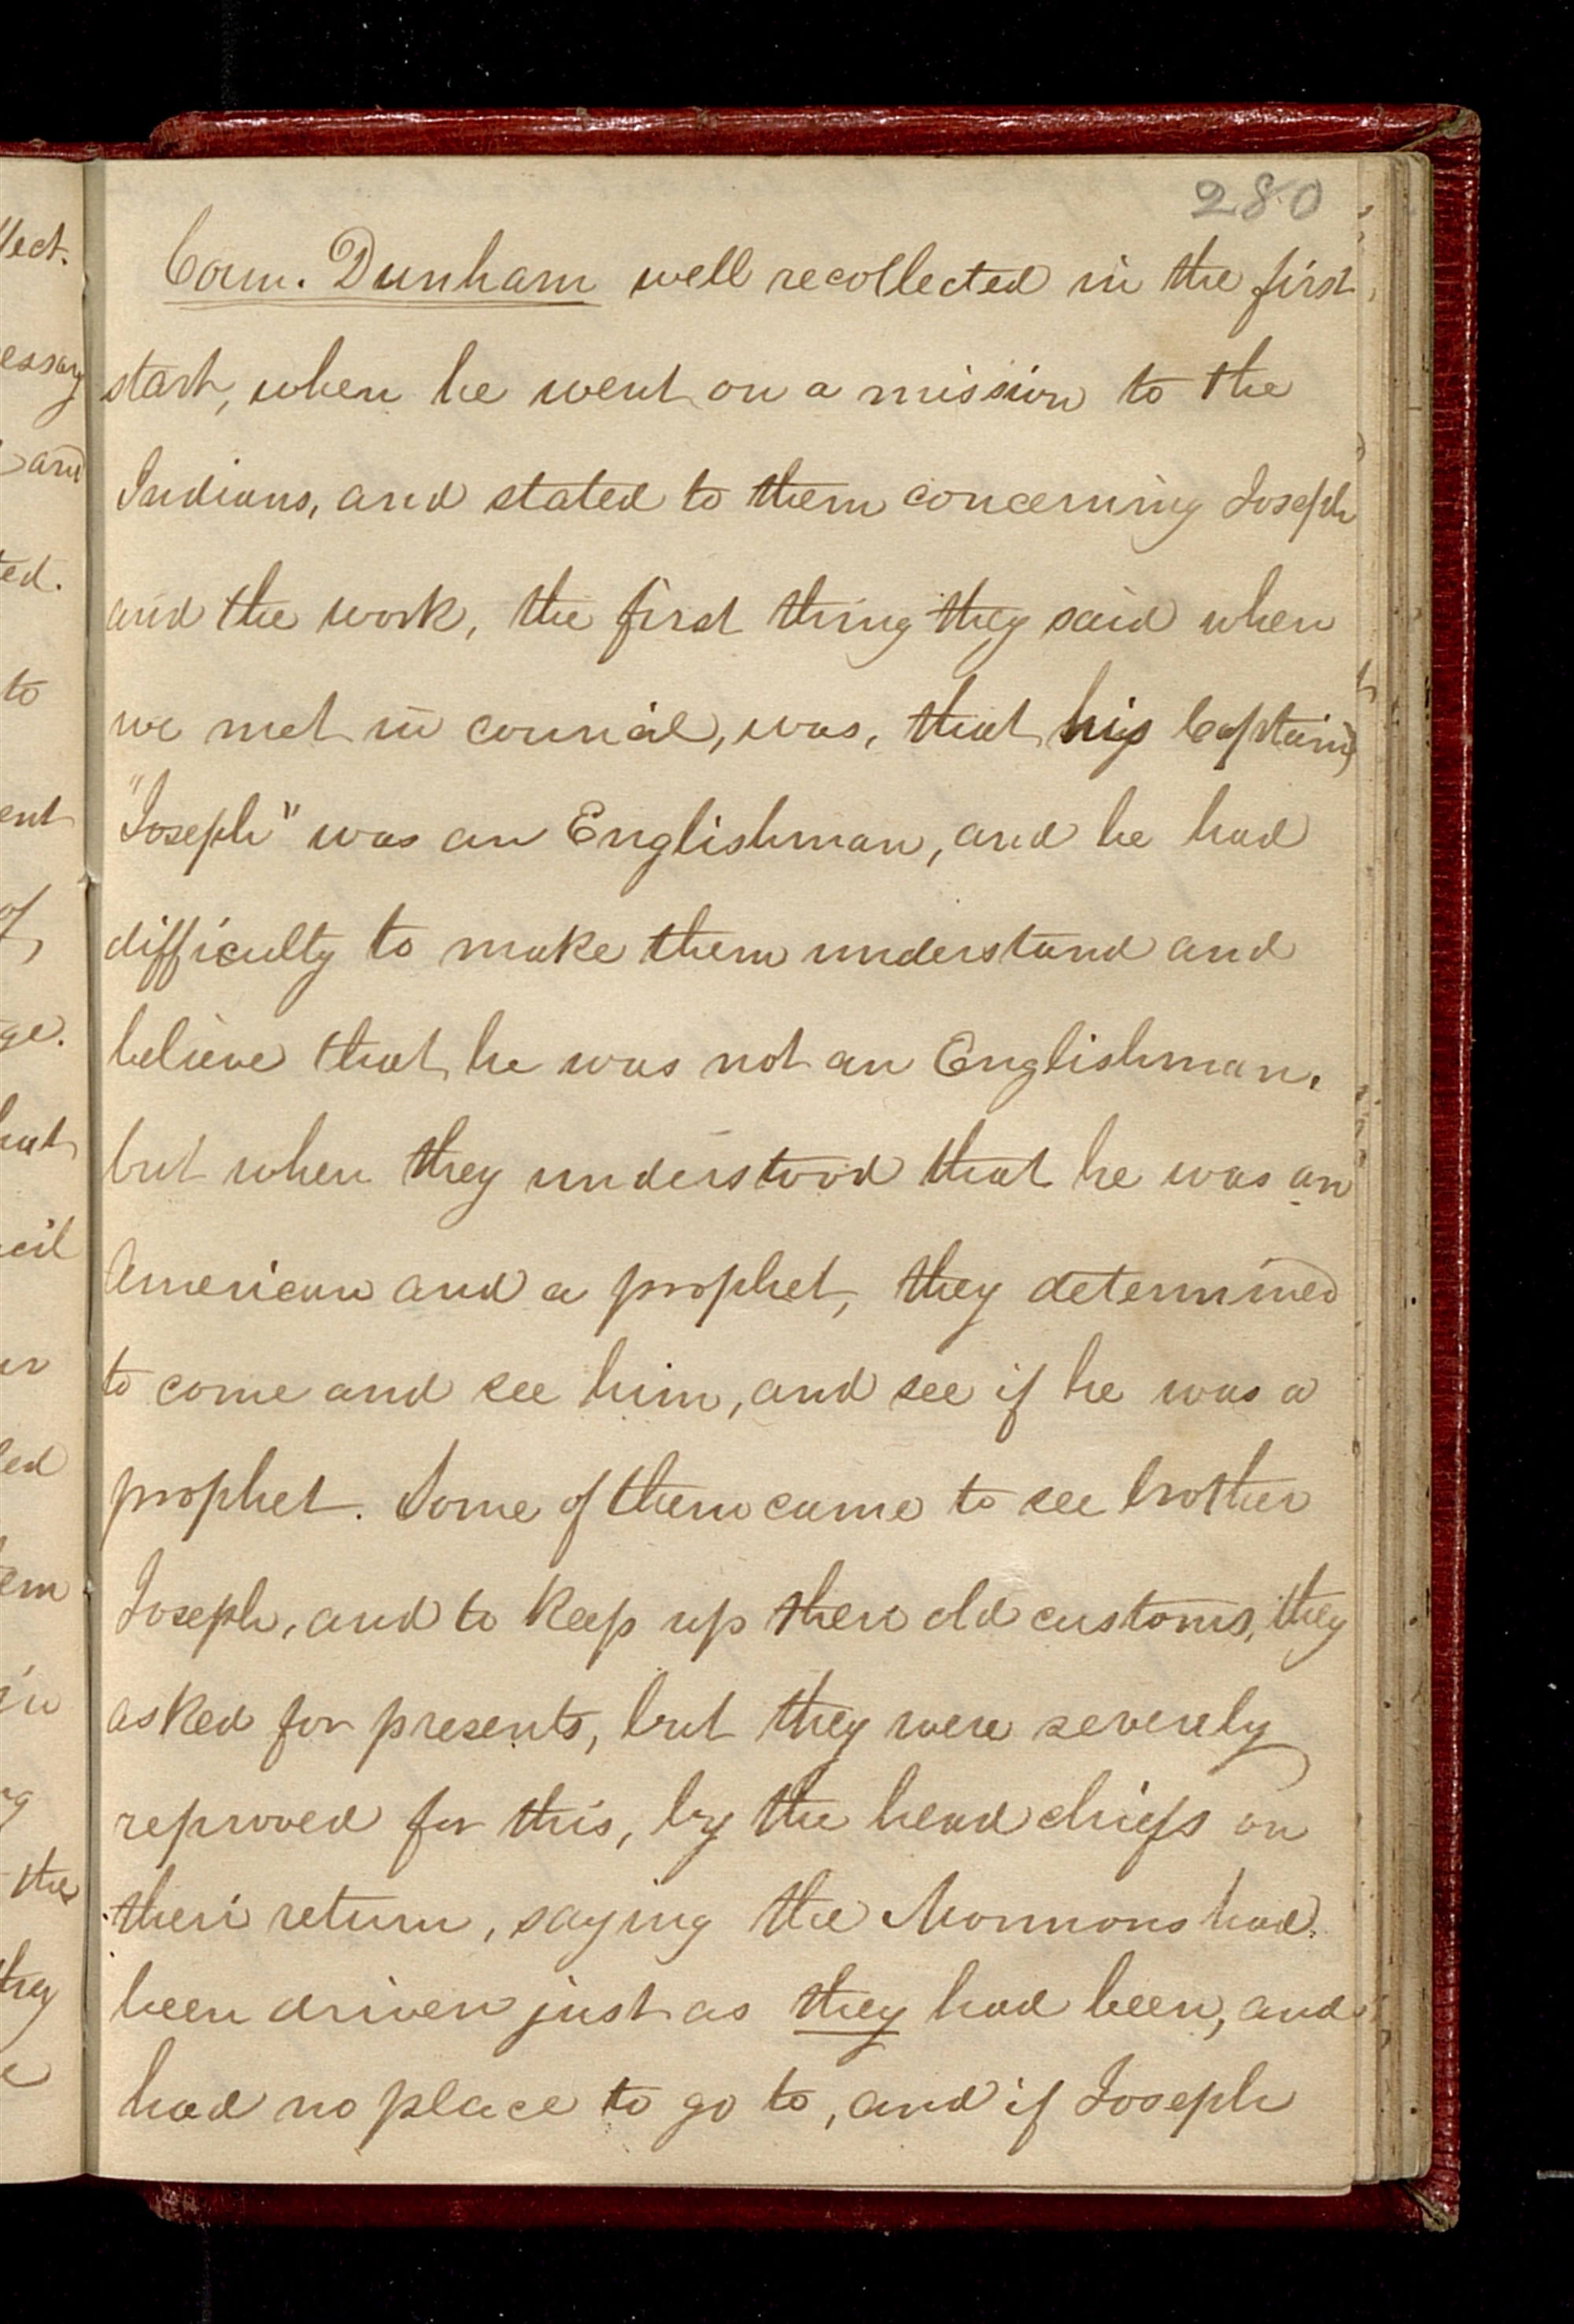 280
Coun. Dunham well recollected in the first
start, when he went on a mission to the
Indians, and stated to them concerning Joseph
and the work, the first thing they said when
we met in council, was, that his Captain,
"Joseph" was an Englishman, and he had
difficulty to make them understand and
believe that he was not an Englishman,
but when they understood that he was an
American and a prophet, they determined
to come and see him, and see if he was a
prophet. Some of them came to see brother
Joseph, and to keep up their old customs, they
asked for presents, but they were severely
reproved for this, by the head chiefs on
their return, saying the Mormons had
been driven just as they had been, and
had no place to go to, and if Joseph